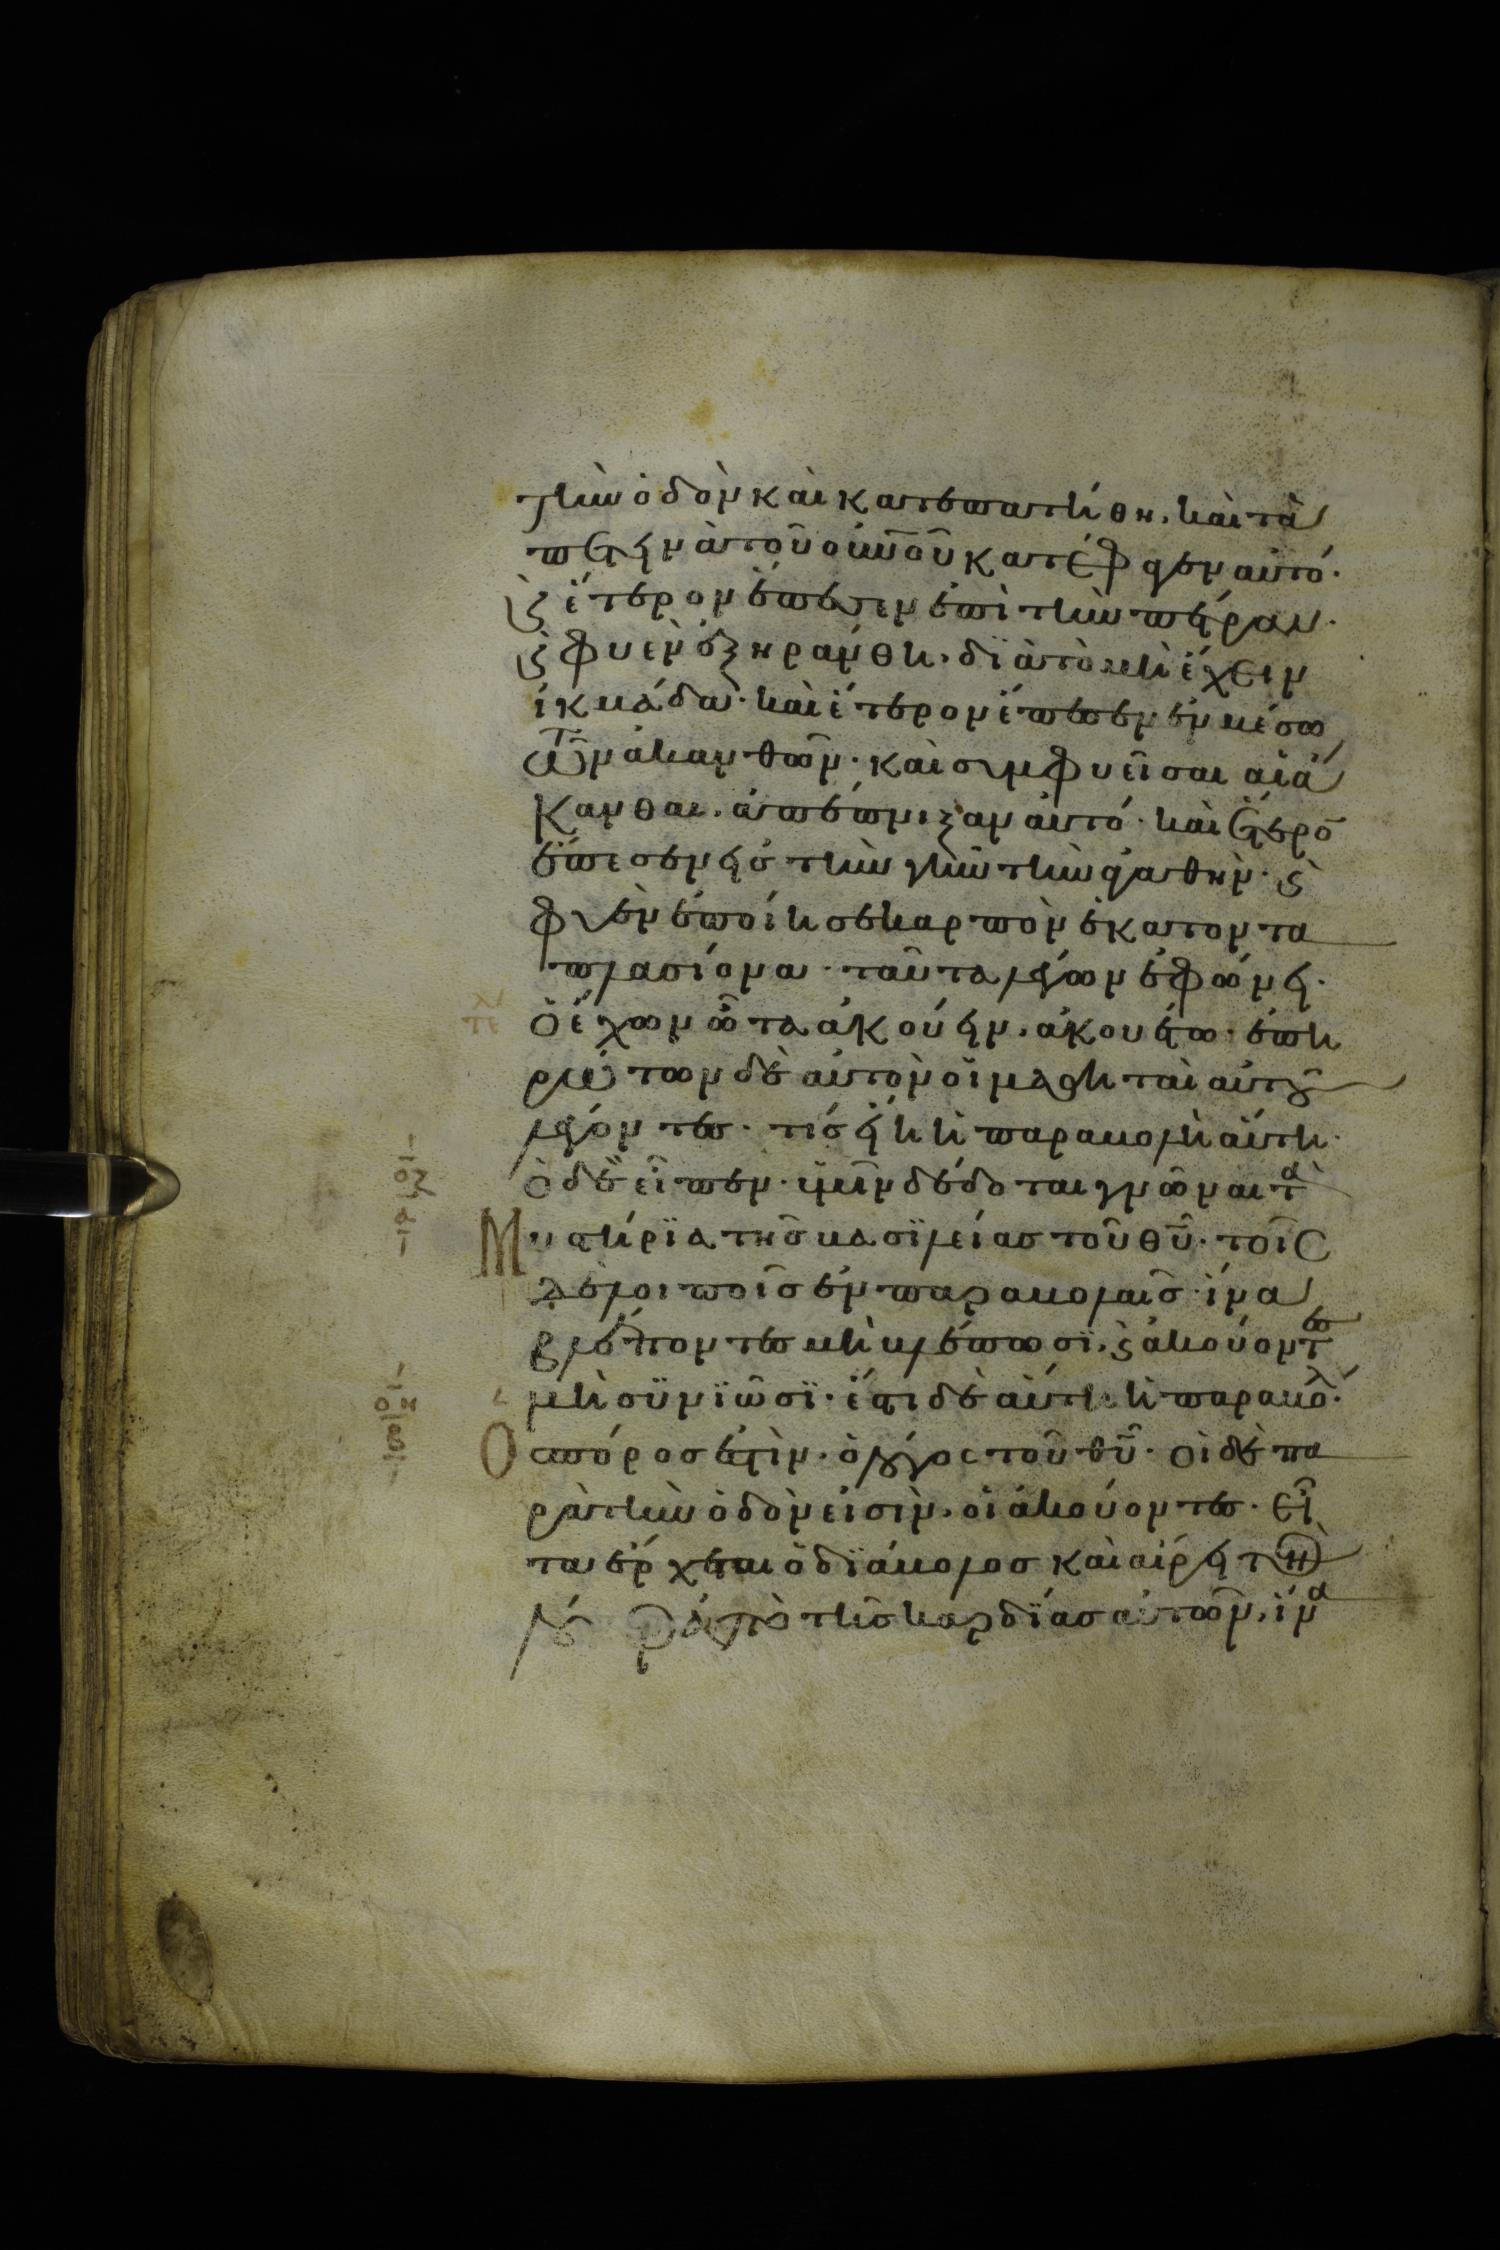 τὴν ὁδὸν καὶ κατεπατήθη. καὶ τὰ
πετεινὰ τοῦ οὐνοῦ κατέφαγεν αὐτό·
ϛ ἕτερον ἔπεσεν ἐπὶ τὴν πέτραν·
ϛ φυὲν ἐξηράνθη. δϊὰ τὸ μὴ ἔχειν
ἰκμάδα· καὶ ἕτερον ἔπεσεν ἐν μέσω
τῶν ἀκανθῶν· καὶ συμφυεῖσαι αἱ ἄ
κανθαι. ἀπέπνιξαν αὐτό· καὶ ἕτερο̄
ἔπεσεν εἰς τὴν γῆν τὴν ἀγαθὴν· ϛ
φυὲν ἐποίησε καρπὸν ἑκατοντα
πλασίονα· ταῦτα λέγων ἐφώνει·
ὁ ἔχων ὦτα ἀκούειν. ἀκουέτω· ἐπη
ρώτων δὲ αὐτὸν οἱ μαθηταὶ αὐτοῦ
λέγοντες· τίς εἴη ἡ παραβολὴ αὕτη·
ὁ δὲ εἶπεν· ὑμῖν δέδοται γνῶναι τὰ
Μυστήρϊα τῆς βασϊλείας τοῦ θῦ· τοῖς
δὲ λοιποῖς ἐν παραβολαῖς· ἵνα
βλέποντες μὴ βλέπωσϊ. ϛ ἀκούοντες
μὴ συνϊῶσϊ· ἔστι δὲ αὕτη ἡ παραβολ·
Ὁ σπόρος ἐστὶν. ὁ λόγος τοῦ θῦ· οἱ δὲ πα
ρὰ τὴν ὁδὸν εἰσὶν. οἱ ἀκούοντες· εἶ
τα ἔρχεται ὁ δϊάβολος καὶ αἴρει τὸν
λό ἀπὸ τῆς καρδίας αὐτῶν. ἵνα